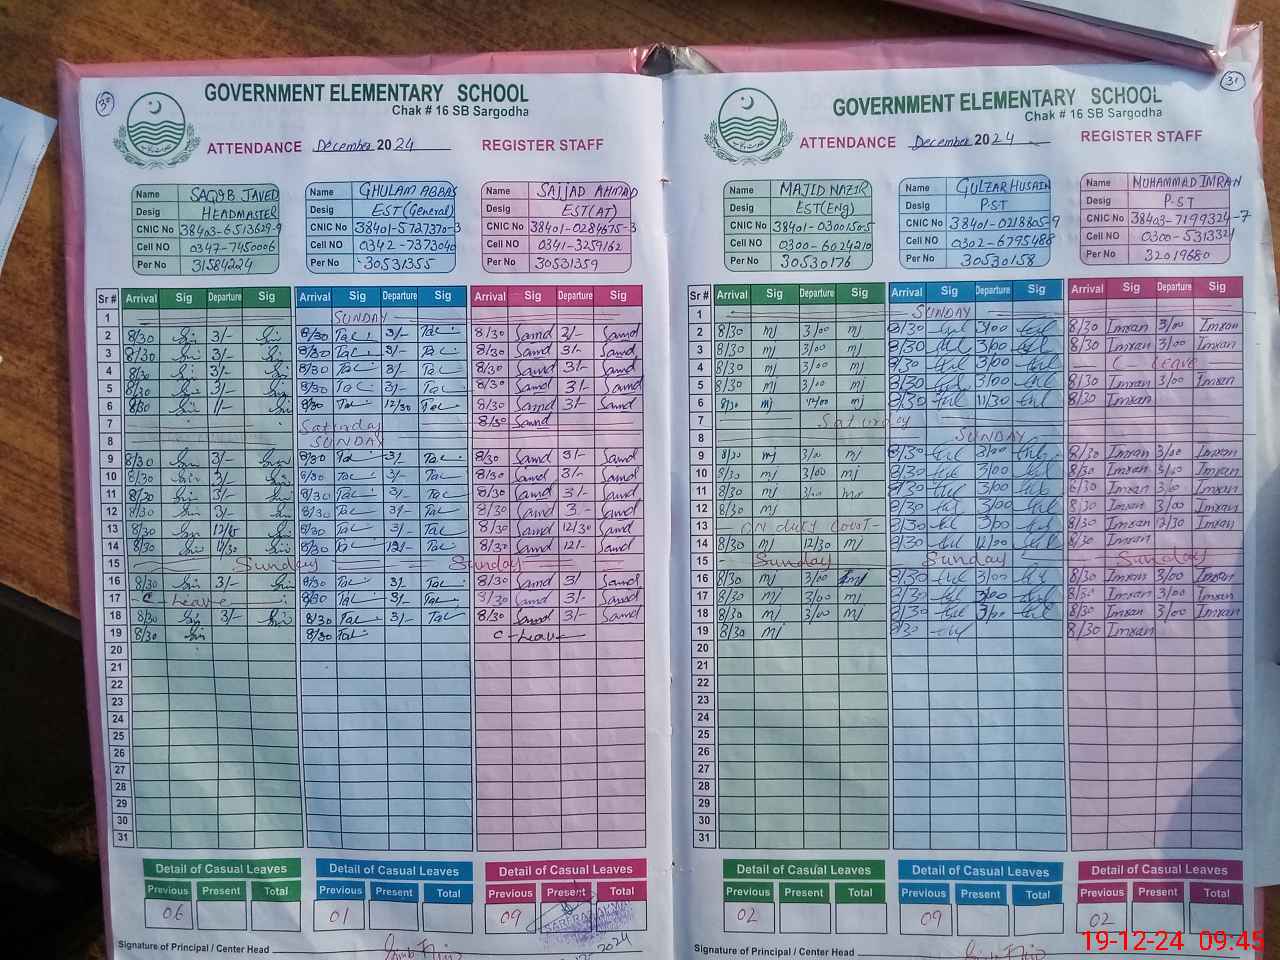 30
GOVERNMENT ELEMENTARY SCHOOL
Chak # 16 SB Sargodha
ATTENDANCE December 2024 REGISTER STAFF
Name SAQIB JAVED Name GHULAM ABBAS Name SAJJAD AHMAD
Desig HEADMASTER Desig EST(General) Desig EST(AT)
CNIC No 38403-6513629-9 CNIC No 38401-5727370-3 CNIC No 38401-0284675-3
Cell NO 0347-7450006 Cell NO 0342-7373040 Cell NO 0341-3259162
Per No 31584224 Per No 30531355 Per No 30531359
Sr # Arrival Sig Departure Sig Arrival Sig Departure Sig Arrival Sig Departure Sig
1 SUNDAY
2 8/30 3/- 8/30 3/- 8/30 Samd 2/- Samd
3 8/30 3/- 8/30 3/- 8/30 Samd 3/- Samd
4 8/30 3/- 8/30 3/- 8/30 Samd 3/- Samd
5 8/30 3/- 8/30 3/- 8/30 Samd 3/- Samd
6 8/30 1/- 8/30 12/30 8/30 Samd 3/- Samd
7 Saturday 8/30 Samd
8 SUNDAY
9 8/30 3/- 8/30 3/- 8/30 Samd 3/- Samd
10 8/30 3/- 8/30 3/- 8/30 Samd 3/- Samd
11 8/30 3/- 8/30 3/- 8/30 Samd 3/- Samd
12 8/30 3/- 8/30 3/- 8/30 Samd 3- Samd
13 8/30 8/30 3/- 8/30 Samd 12/30 Samd
14 8/30 8/30 8/30 Samd 12/- Samd
15 Sunday Sunday
16 8/30 3/- 8/30 3/- 8/30 Samd 3/ Samd
17 C- Leave 8/30 3/- 8/30 Samd 3/- Samd
18 8/30 3/- 8/30 3/- 8/30 Samd 3/- Samd
19 8/30 8/30 C-Leave
20
21
22
23
24
25
26
27
28
29
30
31
Detail of Casual Leaves Detail of Casual Leaves Detail of Casual Leaves
Previous Present Total Previous Present Total Previous Present Total
06 01 09
Signature of Principal / Center Head
2024
31
GOVERNMENT ELEMENTARY SCHOOL
Chak # 16 SB Sargodha
ATTENDANCE December 2024 REGISTER STAFF
Name MAJID NAZIR Name GULZAR HUSAIN Name MUHAMMAD IMRAN
Desig EST(Eng) Desig PST Desig PST
CNIC No 38401-0300150-5 CNIC No 38401-0218805-9 CNIC No 38403-7199324-7
Cell NO 0300-6024210 Cell NO 0302-6795488 Cell NO 0300-5313321
Per No 30530176 Per No 30530158 Per No 32019680
Sr # Arrival Sig Departure Sig Arrival Sig Departure Sig Arrival Sig Departure Sig
1 SUNDAY
2 8/30 mj 3/00 mj 8/30 3/00 8/30 Imran 3/00 Imran
3 8/30 mj 3/00 mj 8/30 3/00 8/30 Imran 3/00 Imran
4 8/30 mj 3/00 mj 8/30 3/00 C- Leave
5 8/30 mj 3/00 mj 8/30 3/00 8/30 Imran 3/00 Imran
6 8/30 mj 12/00 mj 8/30 11/30 8/30 Imran
7 Saturday
8 SUNDAY
9 8/30 mj 3/00 mj 8/30 3/00 8/30 Imran 3/00 Imran
10 8/30 mj 3/00 mj 8/30 3/00 8/30 Imran 3/00 Imran
11 8/30 mj 3/00 8/30 3/00 8/30 Imran 3/00 Imran
12 8/30 mj 8/30 3/00 8/30 Imran 3/00 Imran
13 ON duty Court 8/30 3/00 8/30 Imran 12/30 Imran
14 8/30 mj 12/30 mj 8/30 12/00 8/30 Imran
15 Sunday Sunday Sunday
16 8/30 mj 3/00 mj 8/30 3/00 8/30 Imran 3/00 Imran
17 8/30 mj 3/00 mj 8/30 3/00 8/30 Imran 3/00 Imran
18 8/30 mj 3/00 mj 8/30 3/00 8/30 Imran 3/00 Imran
19 8/30 mj 8/30 8/30 Imran
20
21
22
23
24
25
26
27
28
29
30
31
Detail of Casual Leaves Detail of Casual Leaves Detail of Casual Leaves
Previous Present Total Previous Present Total Previous Present Total
02 09 02
Signature of Principal / Center Head
19-12-24 09:45